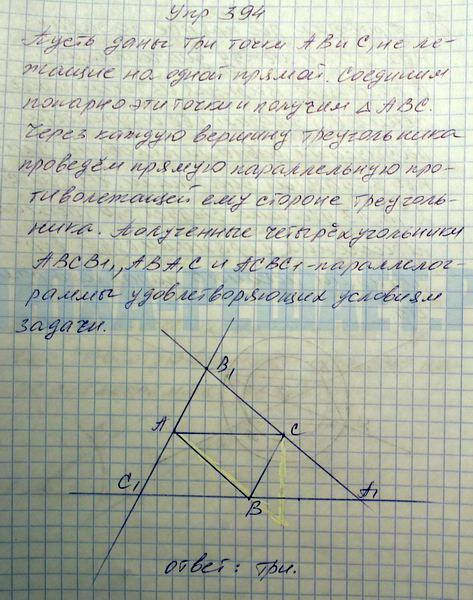 Упр 394
Пусть даны три точки А В и С, не ле-
жащие на одной прямой. Соединим
попарно эти точки и получим △ АВС.
Через каждую вершину треугольника
проведём прямую параллельную про-
тиволежащей ему стороне треуголь-
ника. Полученные четырёхугольники
АВСВ1, АВА1С и АСВС1-параллелог-
раммы удовлетворяющих условиям
задачи.
В1
А
С
С1
В
А1
ответ: три.